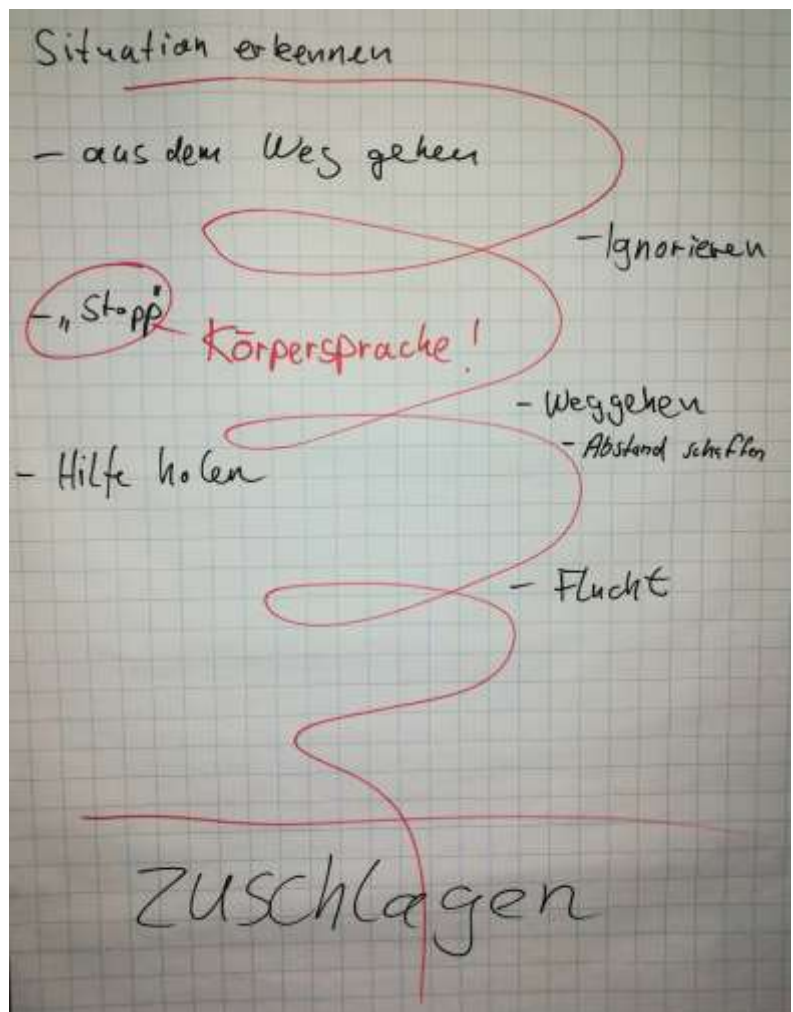 Situation erkennen
- aus dem Weg gehen
- Ignorieren
- „Stopp"
Körpersprache!
- Weggehen
- Abstand schaffen
- Hilfe holen
- Flucht
Zuschlagen